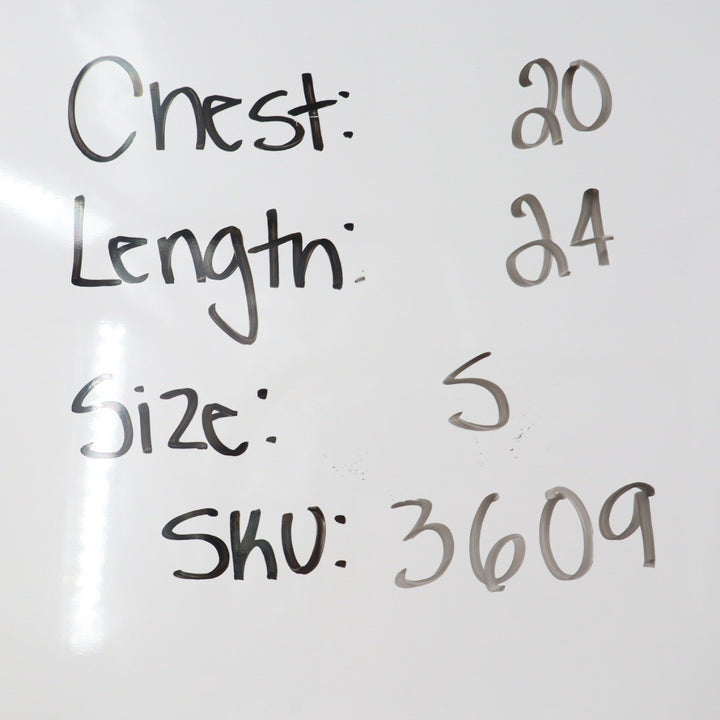 Chest: 20
Length: 24
Size: S
SKU: 3609